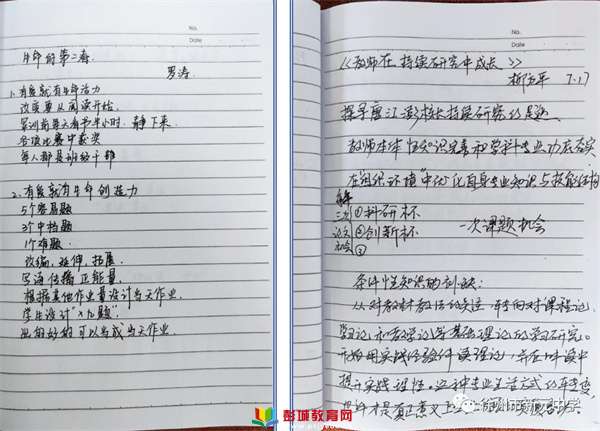 No.
Date
生命的第二春
罗涛
1.有爱就有生命活力
改变要从阅读开始.
军训前每天有个半小时静下来.
各项比赛中获奖
每人都是班级干部
2.有爱就有生命创造力
5个容易题
3个中档题
1个难题
改编,延伸,拓展.
写海传播正能量.
根据其他作业量设计当天作业.
学生设计""九题.
出的好的可以当成当天作业.
No.
Date
《教师在持续研究中成长》
7.17
探寻唐江澎校长持续研究的足迹
教师本体性知识完善和学科专业功底夯实
在组织环境中优化自身专业知识与技能结构
三次论文机会
①科研杯
②创新杯
③
一次课题机会
条件性知识的
从对教材教法的关注,转向对课程论.
学习论和教学论等基础理论的学习研究。
开始用实践经验解读理论,并在叩读中
提升实践理性。这种专业生活方式的转变,
也许才是真正意义上
徐州市新元中学
彭城教育网